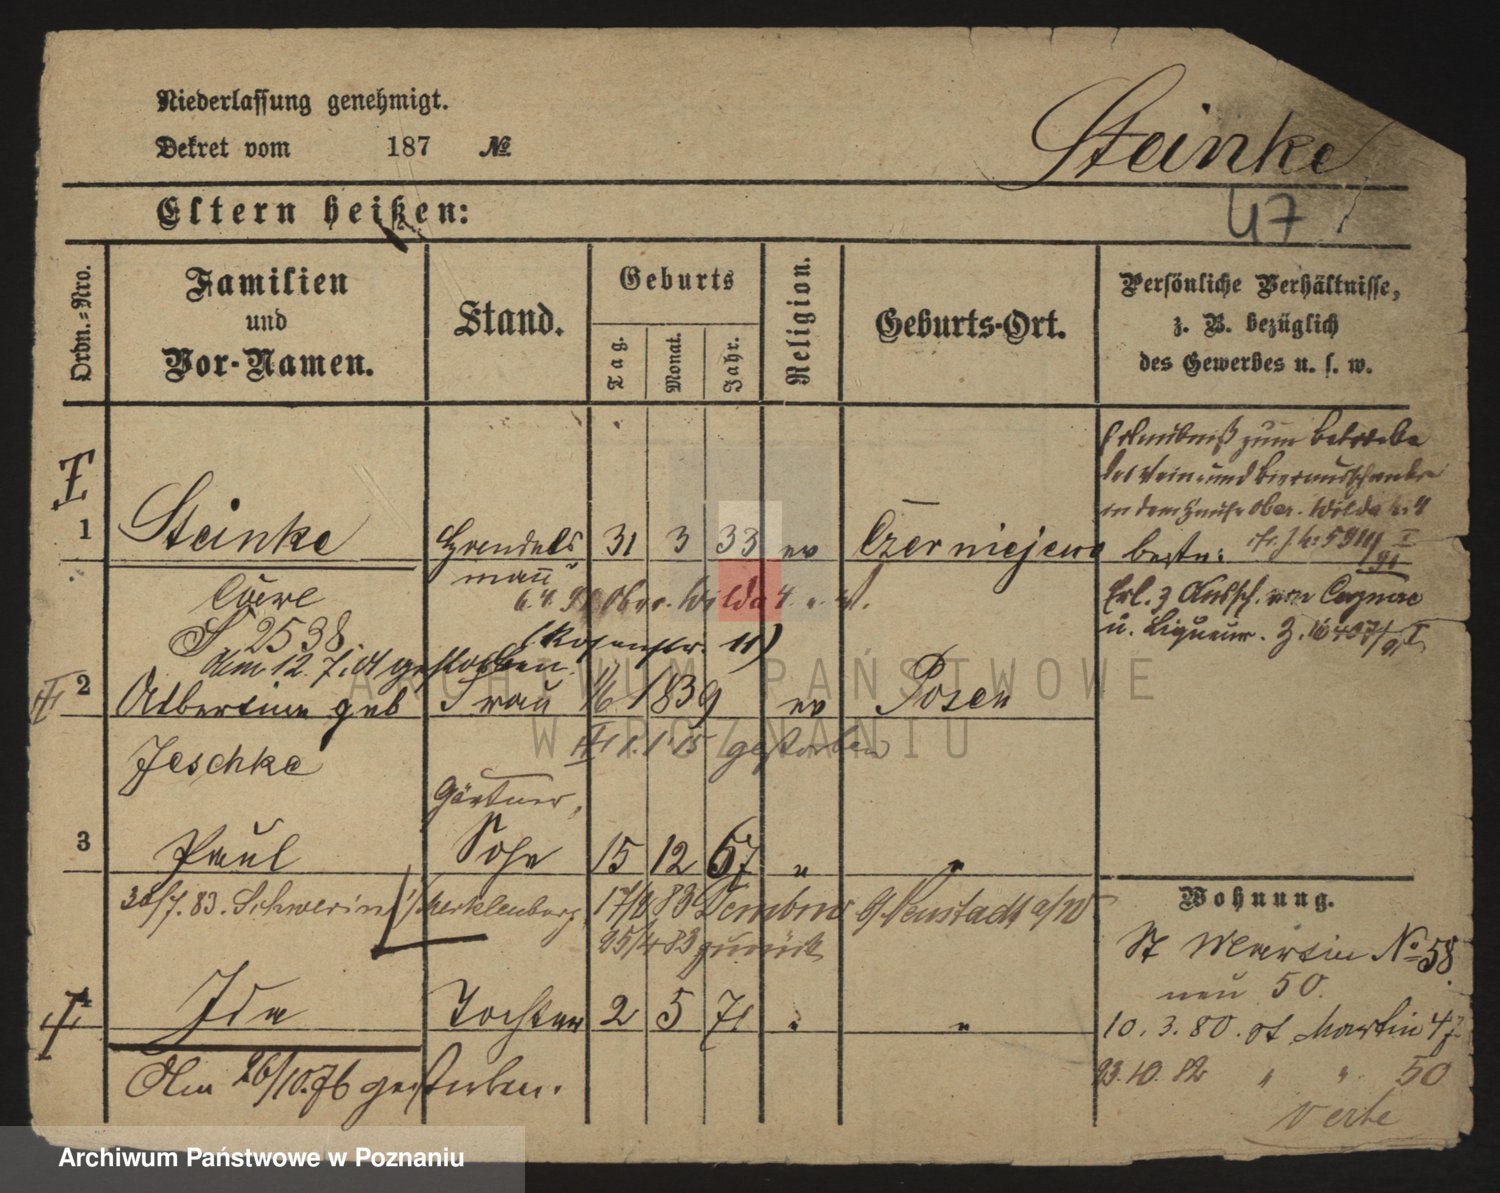 Niederlassung genehmigt.
Dekret vom 187 №
Steinke
47
Eltern heißen:
Ordn.-Nro.
Familien
und
Vor-Namen.
Stand.
Geburts
Tag.
Monat.
Jahr.
Religion.
Geburts-Ort.
Persönliche Verhältnisse,
z. B. bezüglich
des Gewerbes u. s. w.
Erlaubniß zum Betriebe
des Wein- und Bierausschanks
in dem Hause Ober. Wilda № 4
1 Steinke Handels 31 3 33 ev Czerniejewo
mann
Ober. Wilda 4.
Erl. z Aussch. von Cognac
u. Liqueur.
S 2538
(Rosenstr. 11)
am 12. 7. 01 gestorben.
2 Albertine geb Frau 1/6 1839 ev Posen
Jeschke
1. 1. 15 gestorben
Gärtner,
3 Paul Sohn 15 12 67 " "
30/7. 83. Schwerin i/Mecklenburg. 17/2 83 Dembno b/Neustadt a/W
25/4 83 zurück
Wohnung.
St Martin No 58.
neu 50.
4 Ida Tochter 2 5 71 " "
10. 3. 80. St Martin 47
Am 26/10.76 gestorben.
23.10.82 " " 50
verte
ARCHIWUM PAŃSTWOWE
W POZNANIU
Archiwum Państwowe w Poznaniu